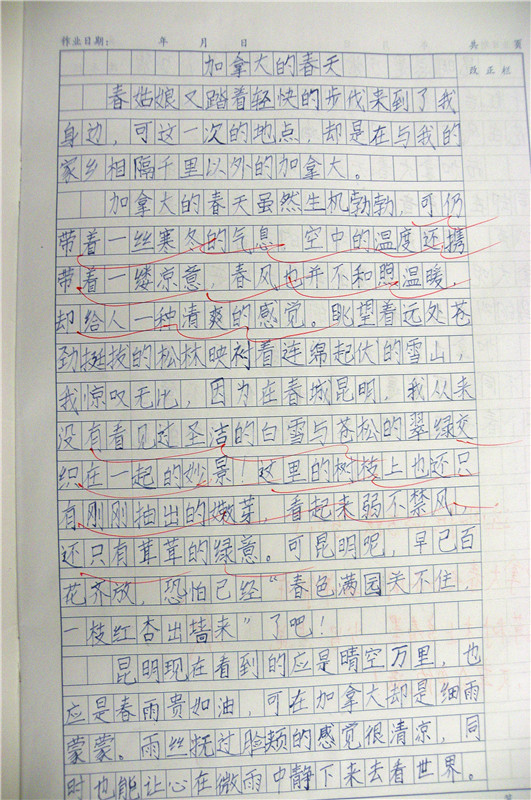 作业日期： 年 月 日 共 页
加拿大的春天 改正栏
春姑娘又踏着轻快的步伐来到了我
身边，可这一次的地点，却是在与我的
家乡相隔千里以外的加拿大。
加拿大的春天虽然生机勃勃，可仍
带着一丝寒冬的气息，空中的温度还携
带着一缕凉意，春风也并不和照温暖，
却给人一种清爽的感觉。眺望着远处苍
劲挺拔的松林映衬着连绵起伏的雪山，
我惊叹无比，因为在春城昆明，我从来
没有看见过圣洁的白雪与苍松的翠绿交
织在一起的妙景！这里的树枝上也还只
有刚刚抽出的嫩芽，看起来弱不禁风，
还只有茸茸的绿意。可昆明呢，早已百
花齐放，恐怕已经“春色满园关不住，
一枝红杏出墙来”了吧！
昆明现在看到的应是晴空万里，也
应是春雨贵如油，可在加拿大却是细雨
蒙蒙。雨丝抚过脸颊的感觉很清凉，同
时也能让心在微雨中静下来去看世界。